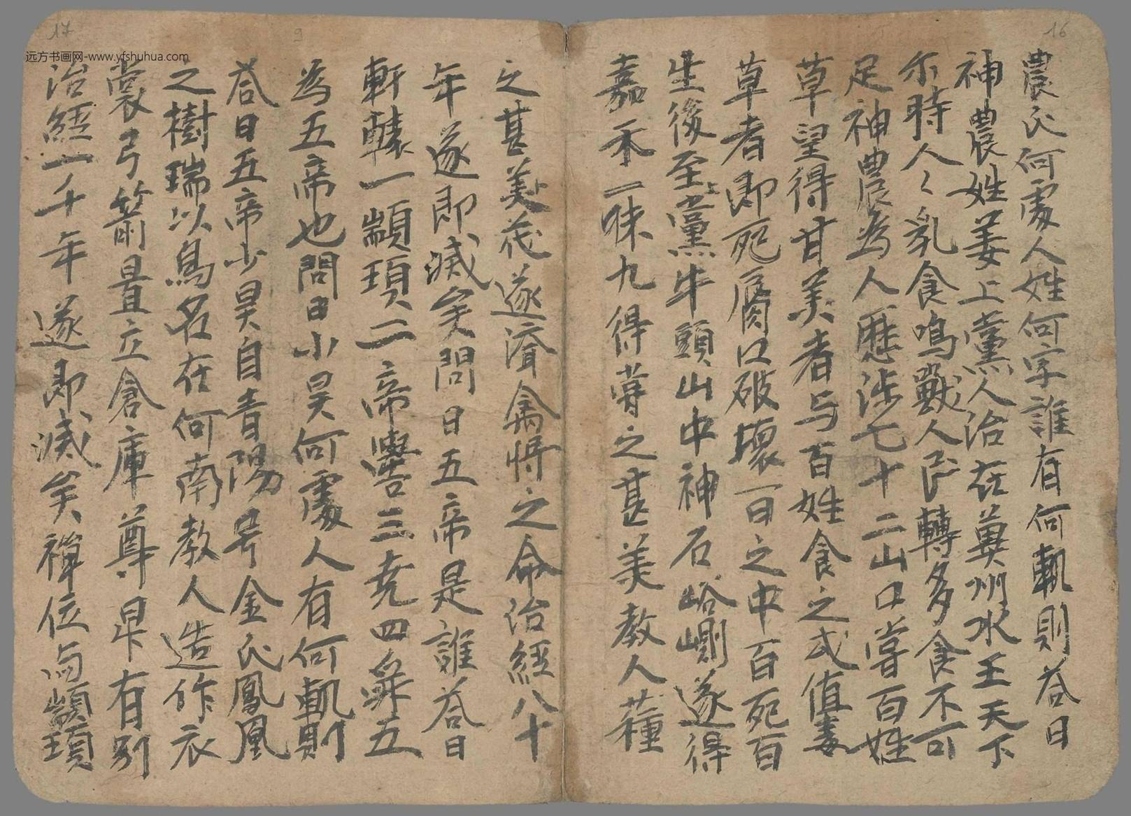 16
農氏何處人姓何字誰有何軌則荅曰
神農姓姜上黨人治在冀州水王天下
尓時人〻乳食鳥獸人民轉多食不可
足神農為人歷涉七十二山口嘗百姓
草望得甘美者与百姓食之或值毒
草者即死腐口破壞一日之中百死百
生後至上黨牛頭山中神石峪側遂得
嘉禾一味九得嘗之甚美教人種
17
远方书画网-www.yfshuhua.com
之甚美花遂濟禽將之命治經八十
年遂即滅矣問曰五帝是誰荅曰
軒轅一顓頊二帝嚳三尭四舜五
為五帝也問曰小昊何處人有何軌則
荅曰五帝少昊自青陽号金氏鳳凰
之樹瑞以鳥名在何南教人造作衣
裳弓箭置立倉庫尊卑有别
治經一千年遂即滅矣禪位与顓頊